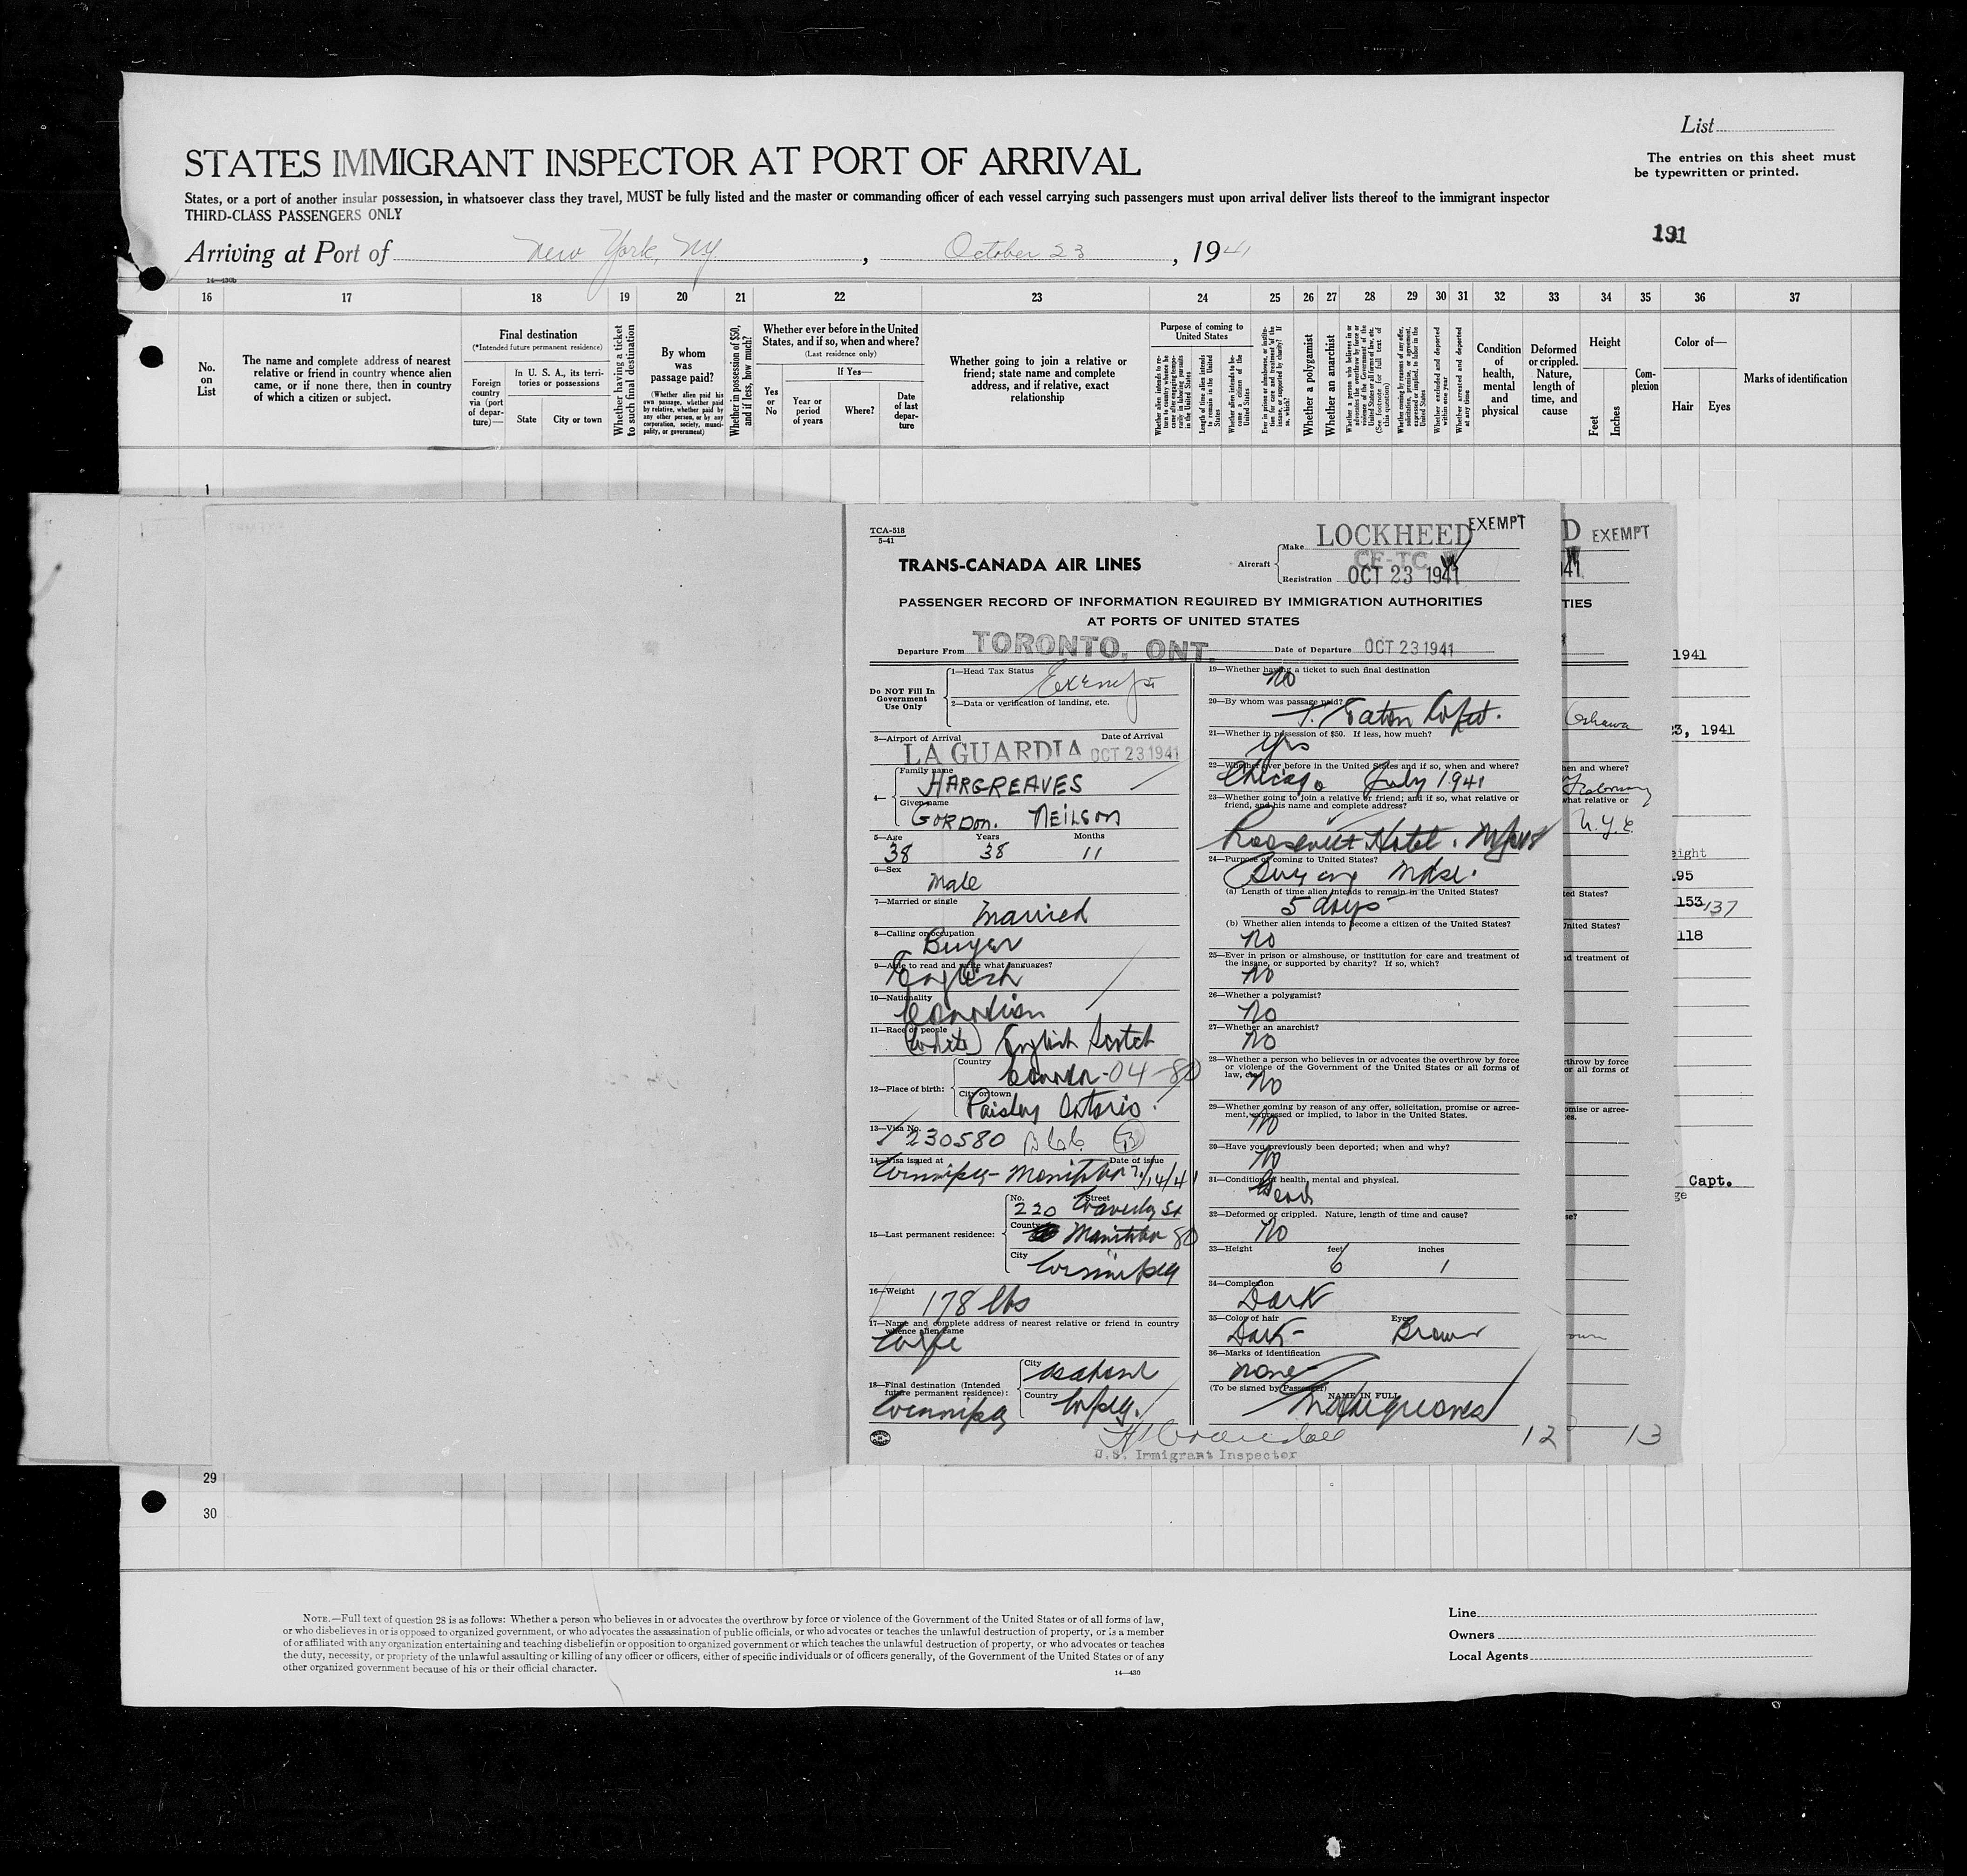 List
STATES IMMIGRANT INSPECTOR AT PORT OF ARRIVAL
The entries on this sheet must
be typewritten or printed.
States, or a port of another insular possession, in whatsoever class they travel, MUST be fully listed and the master or commanding officer of each vessel carrying such passengers must upon arrival deliver lists thereof to the immigrant inspector
THIRD-CLASS PASSENGERS ONLY
191
Arriving at Port of New York, NY, October 23, 1941
14—430b
16 17 18 19 20 21 22 23 24 25 26 27 28 29 30 31 32 33 34 35 36 37
No. on List
The name and complete address of nearest relative or friend in country whence alien came, or if none there, then in country of which a citizen or subject.
Final destination
(*Intended future permanent residence)
Foreign country via (port of departure)—
In U. S. A., its territories or possessions
State
City or town
Whether having a ticket to such final destination
By whom was passage paid?
(Whether alien paid his own passage, whether paid by relative, whether paid by any other person, or by any corporation, society, municipality, or government)
Whether in possession of $50, and if less, how much?
Whether ever before in the United States, and if so, when and where?
(Last residence only)
Yes or No
If Yes—
Year or period of years
Where?
Date of last departure
Whether going to join a relative or friend; state name and complete address, and if relative, exact relationship
Purpose of coming to United States
Whether alien intends to return to country whence he came after engaging temporarily in laboring pursuits in the United States
Length of time alien intends to remain in the United States
Whether alien intends to become a citizen of the United States
Ever in prison or almshouse, or institution for care and treatment of the insane, or supported by charity? If so, which?
Whether a polygamist
Whether an anarchist
Whether a person who believes in or advocates the overthrow by force or violence of the Government of the United States or all forms of law, etc. (See footnote for full text of this question)
Whether coming by reason of any offer, solicitation, promise, or agreement, expressed or implied, to labor in the United States
Whether excluded and deported within one year
Whether arrested and deported at any time
Condition of health, mental and physical
Deformed or crippled. Nature, length of time, and cause
Height
Feet
Inches
Complexion
Color of—
Hair
Eyes
Marks of identification
1
TCA-518
5-41
LOCKHEED EXEMPT
TRANS-CANADA AIR LINES
Aircraft
Make
CF-TC
Registration OCT 23 1941
PASSENGER RECORD OF INFORMATION REQUIRED BY IMMIGRATION AUTHORITIES
AT PORTS OF UNITED STATES
Departure From TORONTO, ONT. Date of Departure OCT 23 1941
Do NOT Fill In
Government
Use Only
1—Head Tax Status
Exempt
2—Data or verification of landing, etc.
3—Airport of Arrival Date of Arrival
LA GUARDIA OCT 23 1941
4—
Family name
HARGREAVES
Given name
GORDON. NEILSON
5—Age Years Months
38 38 11
6—Sex
Male
7—Married or single
Married
8—Calling or occupation
Buyer
9—Able to read and write what languages?
English
10—Nationality
Canadian
11—Race of people
(White) English Scotch
12—Place of birth:
Country
Canada - 04 - 80
City or town
Paisley Ontario.
13—Visa No.
230580
14—Visa issued at Date of issue
Winnipeg - Manitoba 7/14/41
15—Last permanent residence:
No. Street
220 Waverley St
County
Manitoba 80
City
Winnipeg
16—Weight
178 lbs
17—Name and complete address of nearest relative or friend in country
whence alien came
Wife
18—Final destination (Intended
future permanent residence):
Winnipeg
City
as above
Country
Wpeg.
19—Whether having a ticket to such final destination
No
20—By whom was passage paid?
T. Eaton
21—Whether in possession of $50. If less, how much?
Yes
22—Whether ever before in the United States and if so, when and where?
Chicago July 1941
23—Whether going to join a relative or friend; and if so, what relative or
friend, and his name and complete address?
Roosevelt Hotel.
24—Purpose of coming to United States?
Buying Mdse.
(a) Length of time alien intends to remain in the United States?
5 days
(b) Whether alien intends to become a citizen of the United States?
No
25—Ever in prison or almshouse, or institution for care and treatment of
the insane, or supported by charity? If so, which?
No
26—Whether a polygamist?
No
27—Whether an anarchist?
No
28—Whether a person who believes in or advocates the overthrow by force
or violence of the Government of the United States or all forms of
law, etc.
No
29—Whether coming by reason of any offer, solicitation, promise or agree-
ment, expressed or implied, to labor in the United States.
No
30—Have you previously been deported; when and why?
No
31—Condition of health, mental and physical.
Good
32—Deformed or crippled. Nature, length of time and cause?
No
33—Height feet inches
6 1
34—Complexion
Dark
35—Color of hair Eyes
Dark - Brown
36—Marks of identification
none
(To be signed by Passenger)
NAME IN FULL
Hargreaves
U.S. Immigrant Inspector
12
13
D EXEMPT
41
TIES
Oshawa
hen and where?
what relative or
N.Y.C.
ted States?
United States?
nd treatment of
throw by force
or all forms of
omise or agree-
es.
se?
own
1941
23, 1941
eight
195
153 137
118
Capt.
ge
29
30
NOTE.—Full text of question 28 is as follows: Whether a person who believes in or advocates the overthrow by force or violence of the Government of the United States or of all forms of law,
or who disbelieves in or is opposed to organized government, or who advocates the assassination of public officials, or who advocates or teaches the unlawful destruction of property, or is a member
of or affiliated with any organization entertaining and teaching disbelief in or opposition to organized government or which teaches the unlawful destruction of property, or who advocates or teaches
the duty, necessity, or propriety of the unlawful assaulting or killing of any officer or officers, either of specific individuals or of officers generally, of the Government of the United States or of any
other organized government because of his or their official character.
14—430
Line
Owners
Local Agents